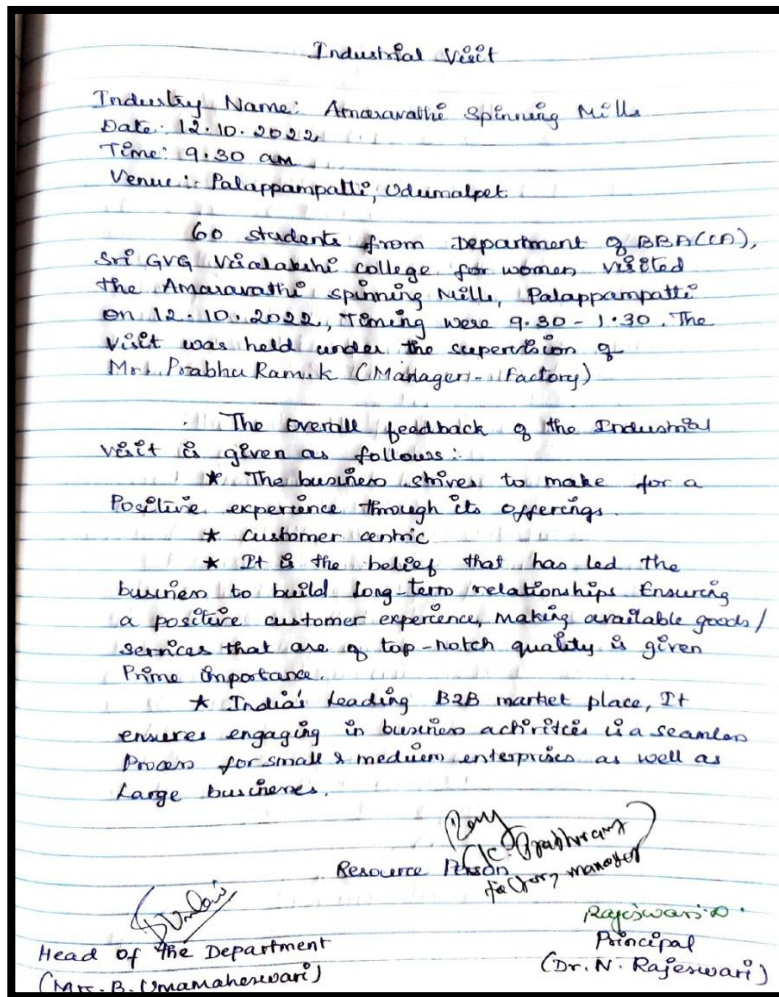 Industrial Visit
Industry Name: Amaravathi Spinning Mills
Date: 12.10.2022
Time: 9.30 am
Venue: Palappampatti, Udumalpet
60 students from Department of BBA(CA),
Sri GVG Visalakshi college for women visited
the Amaravathi spinning Mills, Palappampatti
on 12.10.2022, Timing were 9.30 - 1.30. The
visit was held under the supervision of
Mr. Prabhu Ram.k (Manager - Factory)
The overall feedback of the Industrial
visit is given as follows:
* The business strives to make for a
Positive experience through its offerings.
* customer centric
* It is the belief that has led the
business to build long-term relationships Ensuring
a positive customer experience, making available goods/
services that are of top-notch quality is given
Prime importance.
* India's leading B2B market place, It
ensures engaging in business activities is a seamless
Process for small & medium enterprises as well as
Large businesses.
Resource Person
factory manager
Rajeswari
Head of the Department
Principal
(Mrs. B. Umamaheswari)
(Dr. N. Rajeswari)